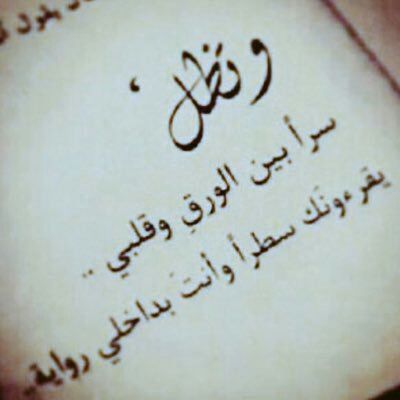 وتظل ،
سراً بين الورقِ وقلبي ..
يقرءونَك سطراً وأنتَ بداخلي رواية..